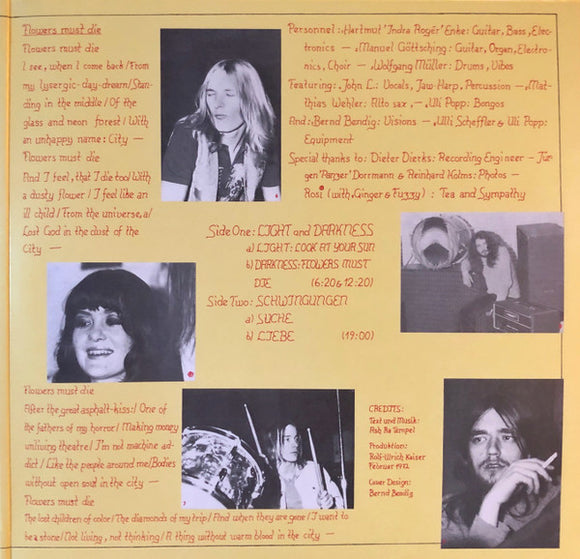 Flowers must die
Flowers must die
I see, when I come back/From
my lysergic-day-dream/Stan-
ding in the middle/Of the
glass and neon forest/With
an unhappy name: City —
Flowers must die
And I feel, that I die too/With
a dusty flower/I feel like an
ill child/From the universe, a/
Lost God in the dust of the
City —
Personnel: Hartmut 'Indra Roger' Enke: Guitar, Bass, Elec-
tronics —. Manuel Göttsching: Guitar, Organ, Electro-
nics, Choir —. Wolfgang Müller: Drums, Vibes
Featuring: John L.: Vocals, Jaw-Harp, Percussion —. Mat-
thias Wehler: Alto sax, —. Uli Popp: Bongos
And: Bernd Bendig: Visions —. Ulli Scheffler & Uli Popp:
Equipment
Special thanks to: Dieter Dierks: Recording Engineer — Jür-
gen 'Panzer' Dorrmann & Reinhard Kolms: Photos —
Rosi (with Ginger & Fuzzy) : Tea and Sympathy
Side One: LIGHT and DARKNESS
a) LIGHT: LOOK AT YOUR SUN
b) DARKNESS: FLOWERS MUST
DIE (6:20 & 12:20)
Side Two: SCHWINGUNGEN
a) SUCHE
b) LIEBE (19:00)
Flowers must die
After the great asphalt-kiss:/One of
the fathers of my horror/Making money
unliving theatre/I'm not machine ad-
dict/Like the people around me/Bodies
without open soul in the city —
Flowers must die
The lost children of color/The diamonds of my trip/And when they are gone/I want to
be a stone/Not living, not thinking/A thing without warm blood in the city —
CREDITS:
Text und Musik:
Ash Ra Tempel
Produktion:
Rolf-Ulrich Kaiser
Februar 1972
Cover Design:
Bernd Bendig